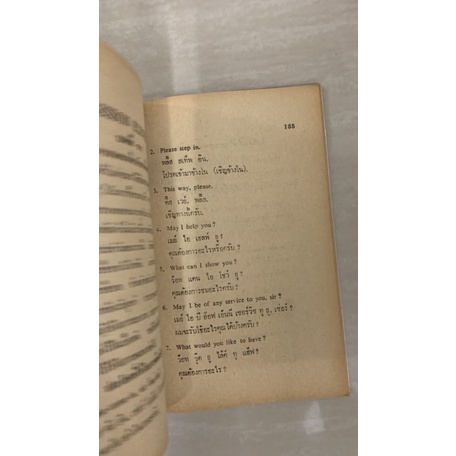 188
2. Please step in.
พลีส สเท็พ อิน.
โปรดเข้ามาข้างใน (เชิญข้างใน).
3. This way, please.
ดิส เวย์, พลีส.
เชิญทางนี้ครับ.
4. May I help you?
เมย์ ไอ เฮลพ์ ยู?
คุณต้องการอะไรหรือครับ?
5. What can I show you?
ว๊อท แคน ไอ โชว์ ยู?
คุณต้องการชมอะไรครับ?
6. May I be of any service to you, sir?
เมย์ ไอ บี อ๊อฟ เอ็นนี่ เซอร์วิซ ทู ยู, เซ่อร์?
ผมจะรับใช้อะไรคุณได้บ้างครับ?
7. What would you like to have?
ว๊อท วู๊ด ยู ไล้ค์ ทู แฮ็ฟ?
คุณต้องการอะไร?